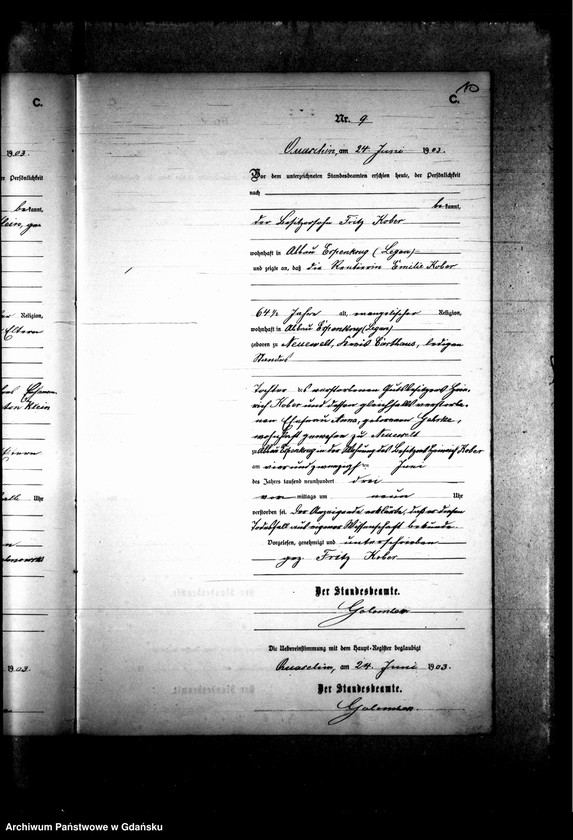 C.
C.
10
Nr. 9
Quaschin, am 24 Juni 1903.
Vor dem unterzeichneten Standesbeamten erschien heute, der Persönlichkeit
nach
bekannt,
der Besitzersohn Fritz Kober
wohnhaft in Abbau Espenkrug (Legan)
und zeigte an, daß die Rentierin Emilie Kober
64½ Jahre alt, evangelischer Religion,
wohnhaft in Abbau Espenkrug (Legan)
geboren zu Neuewelt, Kreis Carthaus, ledigen
Standes
Tochter des verstorbenen Gutsbesitzers Hein-
rich Kober und dessen gleichfalls verstorbe-
nen Ehefrau Anna, geborenen
wohnhaft gewesen zu Neuewelt
zu Abbau Espenkrug in der Wohnung des Besitzers Heinrich Kober
am vierundzwanzigsten Juni
des Jahres tausend neunhundert drei
vor mittags um neun Uhr
verstorben sei. Der Anzeigende erklärte, daß er diesen
Todesfall aus eigener Wissenschaft bekunde.
Vorgelesen, genehmigt und unterschrieben
gez. Fritz Kober
Der Standesbeamte.
Die Uebereinstimmung mit dem Haupt-Register beglaubigt
Quaschin, am 24. Juni 1903.
Der Standesbeamte.
1903.
r Persönlichkeit
bekannt,
Religion,
Eltern
Klein
Uhr
1903.
Archiwum Państwowe w Gdańsku